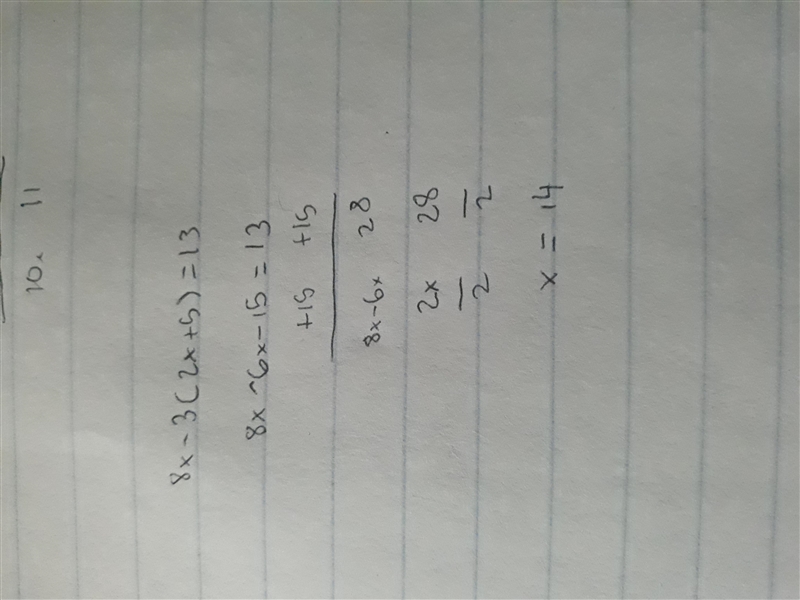 10. 11
8x - 3(2x+5) = 13
8x - 6x - 15 = 13
+15 +15
8x-6x 28
2x 28
2 2
x = 14